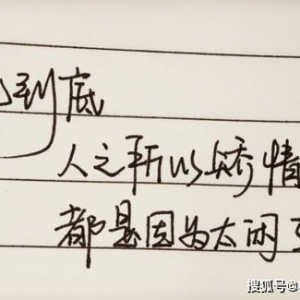 到底
人之所以矫情
都是因为太闲
搜狐号@